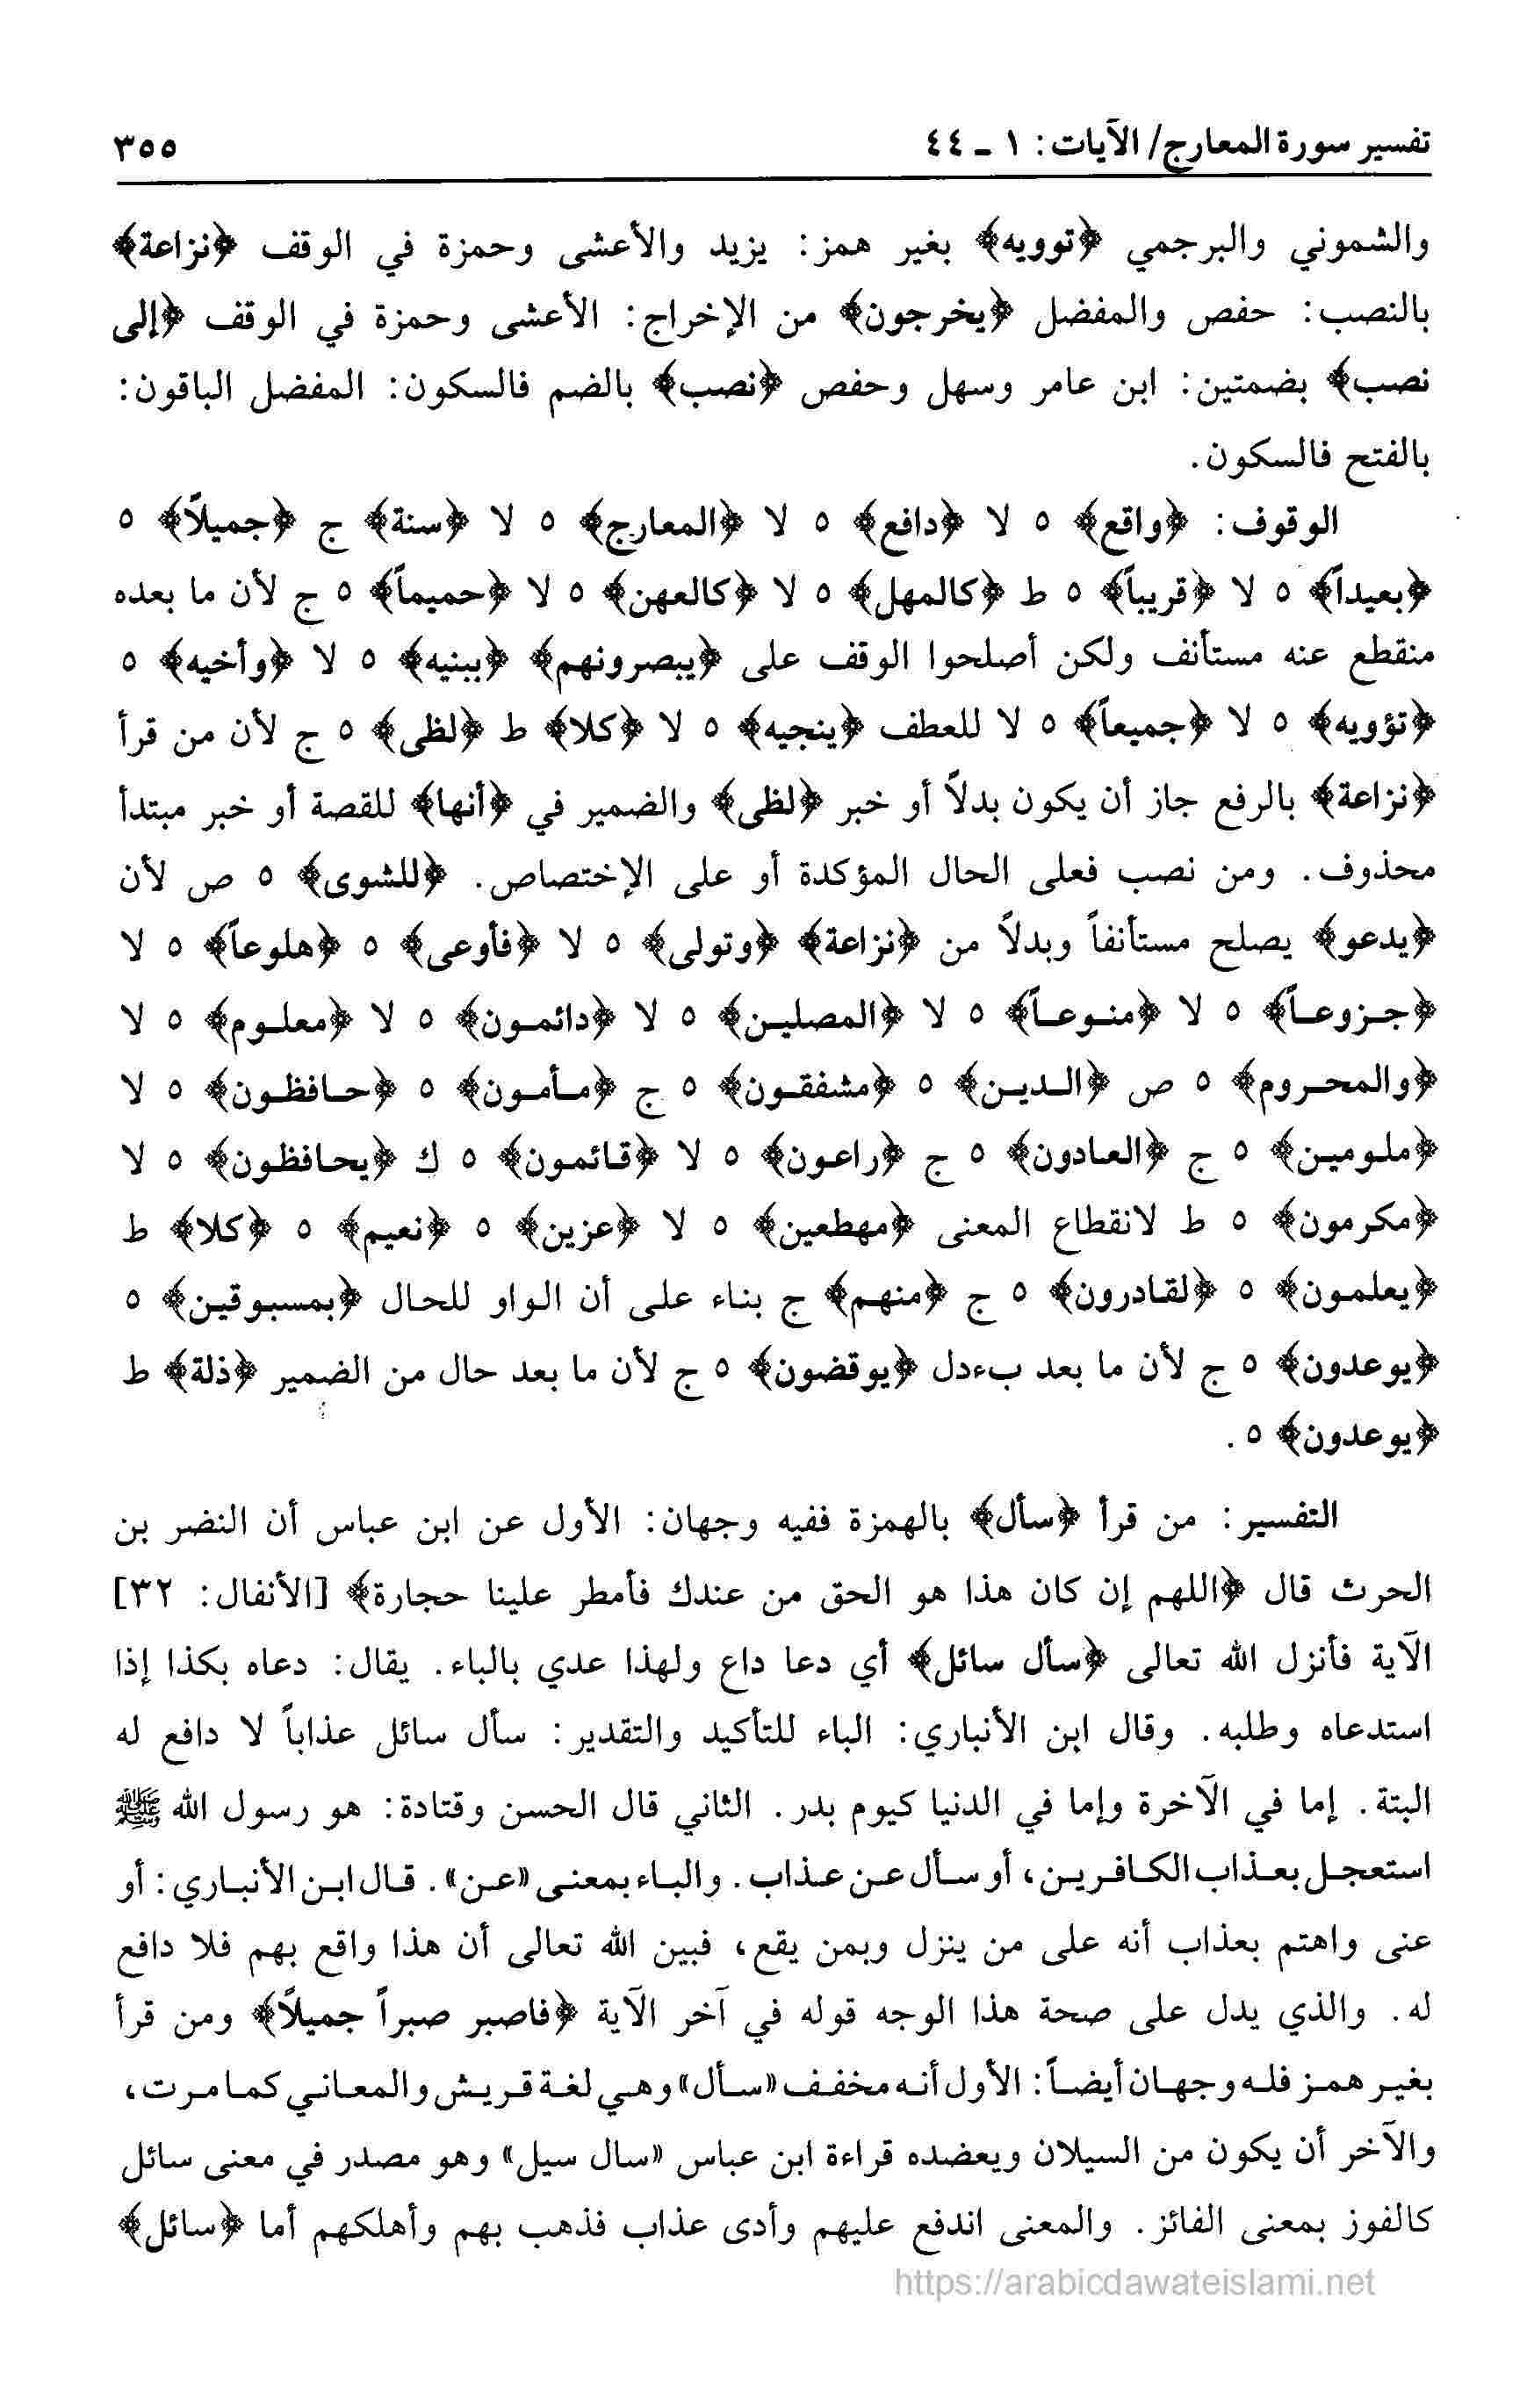 تفسير سورة المعارج/ الآيات: ١ ـ ٤٤ ٣٥٥
والشموني والبرجمي ﴿توويه﴾ بغير همز: يزيد والأعشى وحمزة في الوقف ﴿نزاعة﴾
بالنصب: حفص والمفضل ﴿يخرجون﴾ من الإخراج: الأعشى وحمزة في الوقف ﴿إلى
نصب﴾ بضمتين: ابن عامر وسهل وحفص ﴿نصب﴾ بالضم فالسكون: المفضل الباقون:
بالفتح فالسكون.
الوقوف: ﴿واقع﴾ ٥ لا ﴿دافع﴾ ٥ لا ﴿المعارج﴾ ٥ لا ﴿سنة﴾ ج ﴿جميلاً﴾ ٥
﴿بعيداً﴾ ٥ لا ﴿قريباً﴾ ٥ ط ﴿كالمهل﴾ ٥ لا ﴿كالعهن﴾ ٥ لا ﴿حميماً﴾ ٥ ج لأن ما بعده
منقطع عنه مستأنف ولكن أصلحوا الوقف على ﴿يبصرونهم﴾ ﴿ببنيه﴾ ٥ لا ﴿وأخيه﴾ ٥
﴿تؤويه﴾ ٥ لا ﴿جميعاً﴾ ٥ لا للعطف ﴿ينجيه﴾ ٥ لا ﴿كلا﴾ ط ﴿لظى﴾ ٥ ج لأن من قرأ
﴿نزاعة﴾ بالرفع جاز أن يكون بدلاً أو خبر ﴿لظى﴾ والضمير في ﴿أنها﴾ للقصة أو خبر مبتدأ
محذوف. ومن نصب فعلى الحال المؤكدة أو على الإختصاص. ﴿للشوى﴾ ٥ ص لأن
﴿يدعو﴾ يصلح مستأنفاً وبدلاً من ﴿نزاعة﴾ ﴿وتولى﴾ ٥ لا ﴿فأوعى﴾ ٥ ﴿هلوعاً﴾ ٥ لا
﴿جزوعاً﴾ ٥ لا ﴿منوعاً﴾ ٥ لا ﴿المصلين﴾ ٥ لا ﴿دائمون﴾ ٥ لا ﴿معلوم﴾ ٥ لا
﴿والمحروم﴾ ٥ ص ﴿الدين﴾ ٥ ﴿مشفقون﴾ ٥ ج ﴿مأمون﴾ ٥ ﴿حافظون﴾ ٥ لا
﴿ملومين﴾ ٥ ج ﴿العادون﴾ ٥ ج ﴿راعون﴾ ٥ لا ﴿قائمون﴾ ٥ ك ﴿يحافظون﴾ ٥ لا
﴿مكرمون﴾ ٥ ط لانقطاع المعنى ﴿مهطعين﴾ ٥ لا ﴿عزين﴾ ٥ ﴿نعيم﴾ ٥ ﴿كلا﴾ ط
﴿يعلمون﴾ ٥ ﴿لقادرون﴾ ٥ ج ﴿منهم﴾ ج بناء على أن الواو للحال ﴿بمسبوقين﴾ ٥
﴿يوعدون﴾ ٥ ج لأن ما بعد بءدل ﴿يوقضون﴾ ٥ ج لأن ما بعد حال من الضمير ﴿ذلة﴾ ط
﴿يوعدون﴾ ٥ .
التفسير: من قرأ ﴿سأل﴾ بالهمزة ففيه وجهان: الأول عن ابن عباس أن النضر بن
الحرث قال ﴿اللهم إن كان هذا هو الحق من عندك فأمطر علينا حجارة﴾ [الأنفال: ٣٢]
الآية فأنزل الله تعالى ﴿سأل سائل﴾ أي دعا داع ولهذا عدي بالباء. يقال: دعاه بكذا إذا
استدعاه وطلبه. وقال ابن الأنباري: الباء للتأكيد والتقدير: سأل سائل عذاباً لا دافع له
البتة. إما في الآخرة وإما في الدنيا كيوم بدر. الثاني قال الحسن وقتادة: هو رسول الله ﷺ
استعجل بعذاب الكافرين، أو سأل عن عذاب. والباء بمعنى «عن». قال ابن الأنباري: أو
عنى واهتم بعذاب أنه على من ينزل وبمن يقع، فبين الله تعالى أن هذا واقع بهم فلا دافع
له. والذي يدل على صحة هذا الوجه قوله في آخر الآية ﴿فاصبر صبراً جميلاً﴾ ومن قرأ
بغير همز فله وجهان أيضاً: الأول أنه مخفف «سأل» وهي لغة قريش والمعاني كما مرت،
والآخر أن يكون من السيلان ويعضده قراءة ابن عباس «سال سيل» وهو مصدر في معنى سائل
كالفوز بمعنى الفائز. والمعنى اندفع عليهم وأدى عذاب فذهب بهم وأهلكهم أما ﴿سائل﴾
https://arabicdawateislami.net